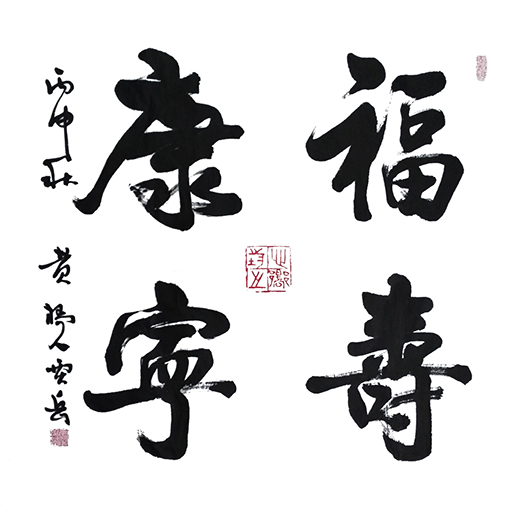 福壽
康寧
丙申秋
黄